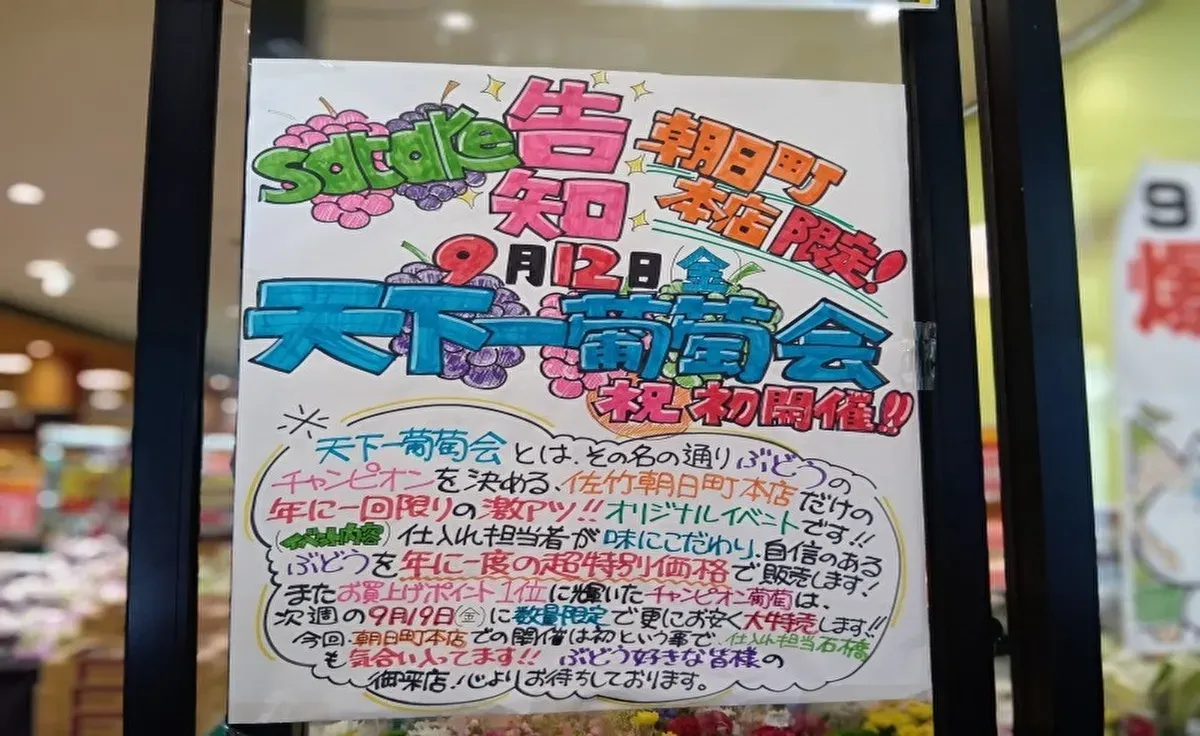 satake 告知 朝日町本店限定!
9月12日金
天下一葡萄会
祝初開催!!
天下一葡萄会とは、その名の通りぶどうの
チャンピオンを決める、佐竹朝日町本店だけの
年に一回限りの激アツ!!オリジナルイベントです!!
(イベント内容)仕入れ担当者が味にこだわり、自信のある
ぶどうを年に一度の超特別価格で販売します!
またお買上げポイント1位に輝いたチャンピオン葡萄は、
次週の9月19日(金)に数量限定で更にお安く大特売します!!
今回、朝日町本店での開催は初という事で、仕入れ担当石橋
も気合い入ってます!!ぶどう好きな皆様の
御来店!心よりお待ちしております。
9
爆